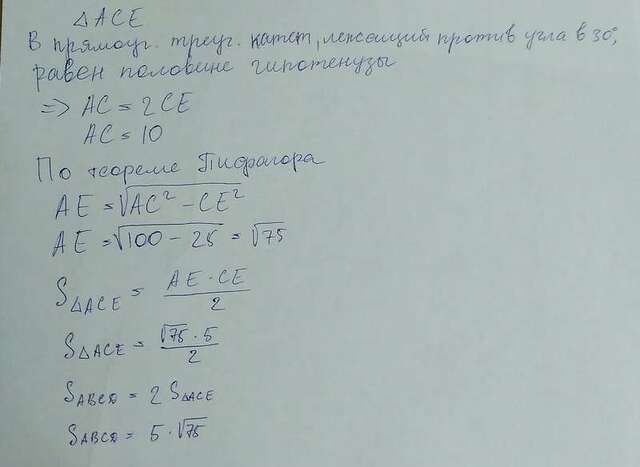 △ACE
В прямоуг. треуг. катет, лежащий против угла в 30°,
равен половине гипотенузы
=> AC = 2CE
AC = 10
По теореме Пифагора
AE = √AC² - CE²
AE = √100 - 25 = √75
S△ACE = AE · CE / 2
S△ACE = √75 · 5 / 2
SABCD = 2 S△ACE
SABCD = 5 · √75